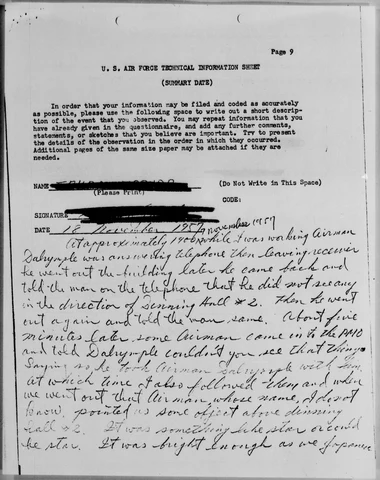 Page 9
U. S. AIR FORCE TECHNICAL INFORMATION SHEET
(SUMMARY DATE)
In order that your information may be filed and coded as accurately
as possible, please use the following space to write out a short descrip-
tion of the event that you observed. You may repeat information that you
have already given in the questionnaire, and add any further comments,
statements, or sketches that you believe are important. Try to present
the details of the observation in the order in which they occurred.
Additional pages of the same size paper may be attached if they are
needed.
NAME (Do Not Write in This Space)
(Please Print)
CODE:
SIGNATURE
DATE 18 November 1957 november 1957
At approximately while I was working Airman
Dalrymple was answering telephone then leaving receiver
he went out the building later he came back and
told the man on the telephone that he did not see any
in the direction of Dinning Hall #2. Then he went
out again and told the man same. About five
minutes later some Airman came in to the
and told Dalrymple couldn't you see that thing
Saying so he took Airman Dalrymple with him.
At which time I also followed them and when
we went out that Airman whose name, I do not
know, pointed us some object above dinning
hall #2. It was something like star or could
be star. It was bright enough as we Japanese